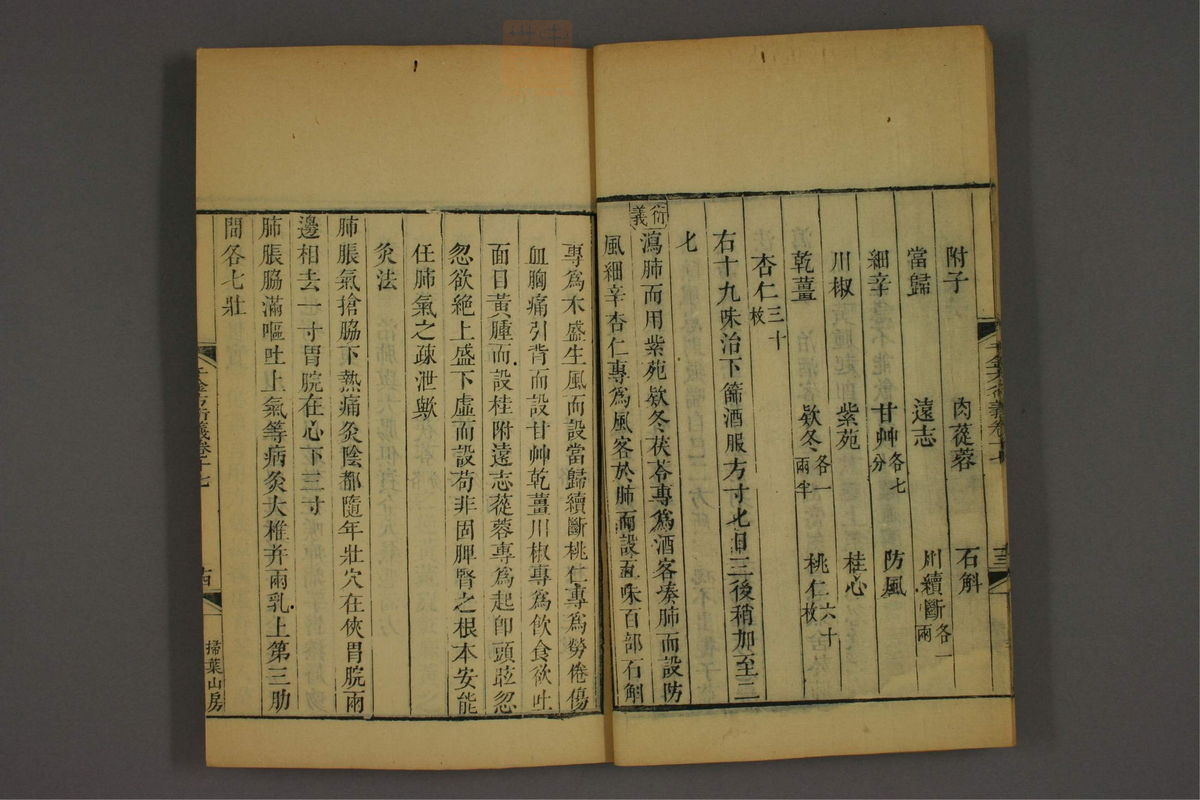 附子　肉蓯蓉　石斛
當歸　遠志　川續斷各一兩
細辛　甘艸各七分　防風
川椒　紫苑　桂心
乾薑　欵冬各一兩半　桃仁六十枚
杏仁三十枚
右十九味治下篩酒服方寸七日三後稍加至三
七
衍義
瀉肺而用紫苑欵冬茯苓專爲酒客湊肺而設防
風細辛杏仁專爲風客於肺而設五味百部石斛
專爲木盛生風而設當歸續斷桃仁專爲勞倦傷
血胸痛引背而設甘艸乾薑川椒專爲飮食欲吐
面目黃腫而設桂附遠志蓯蓉專爲起卽頭眩忽
忽欲絕上盛下虛而設苟非固脾腎之根本安能
任肺氣之疎泄歟
灸法
肺脹氣搶脇下熱痛灸陰都隨年壯穴在俠胃脘兩
邊相去一寸胃脘在心下三寸
肺脹脇滿嘔吐上氣等病灸大椎幷兩乳上第三肋
間各七壯
千金方衍義卷十七
十三
千金方衍義卷十七
十四
掃葉山房